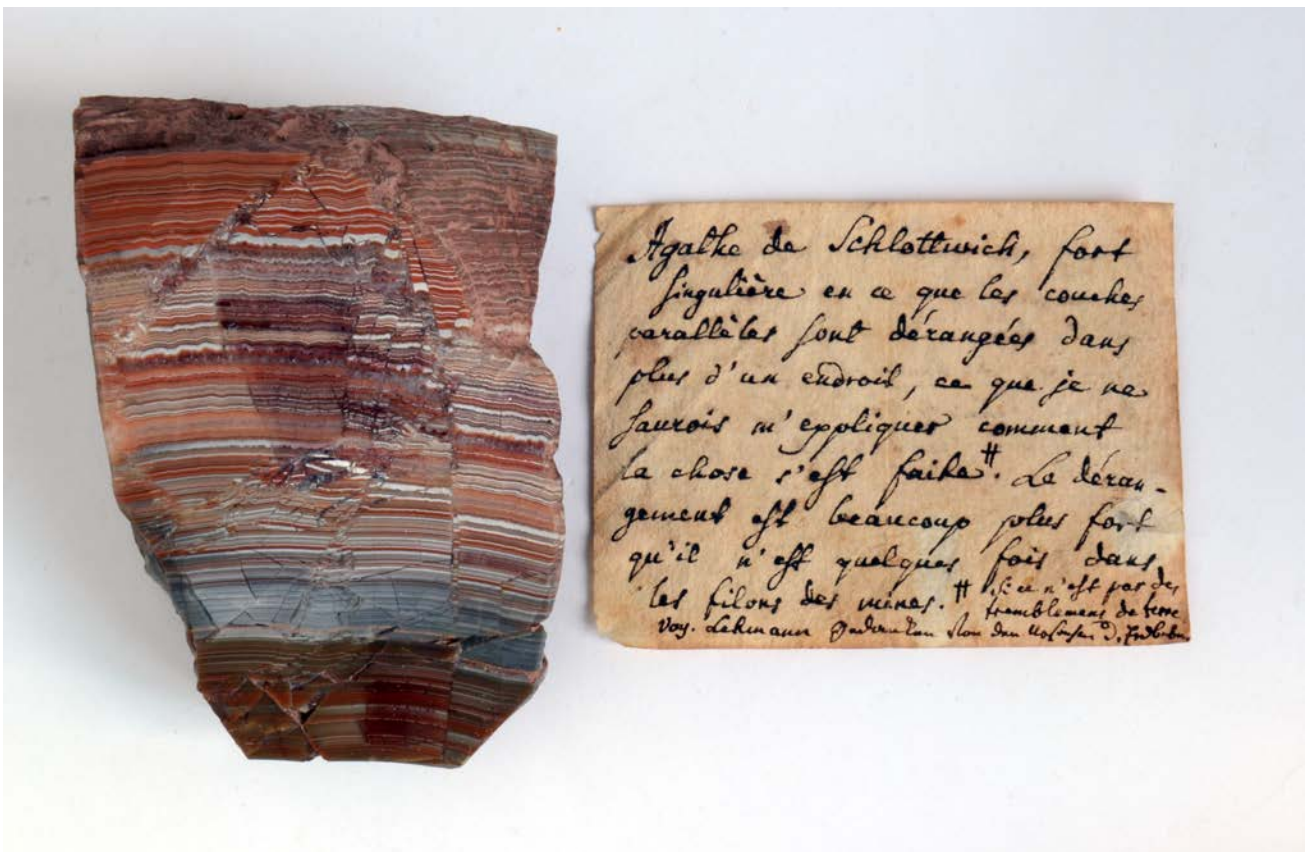 Agathe de Schlottwich, fort
singulière en ce que les couches
parallèles sont dérangées dans
plus d'un endroit, ce que je ne
saurois m'expliquer comment
la chose s'est faite #. Le déran-
gement est beaucoup plus fort
qu'il n'est quelques fois dans
les filons des mines. # Si ce n'est par des
tremblemens de terre
voy. Lehmann Gedancken von den Ursachen d. Erdbeben